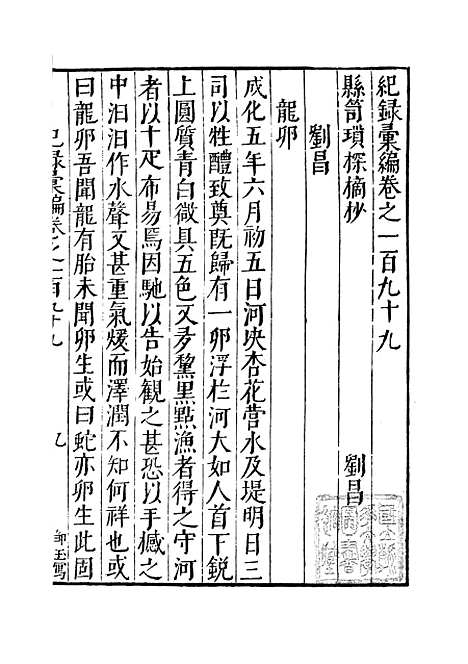 紀録彙編卷之一百九十九
縣笥瑣探摘抄　劉昌
劉昌
龍卵
成化五年六月初五日河決杏花營水及堤明日三
司以牲醴致奠旣歸有一卵浮在河大如人首下銳
上圓質青白微具五色又多黧黑點漁者得之守河
者以十疋布易焉因馳以告始観之甚恐以手撼之
中汩汩作水聲又甚重氣煖而澤潤不知何祥也或
曰龍卵吾聞龍有胎未聞卵生或曰蛇亦卵生此固
紀録彙編卷之一百九十九